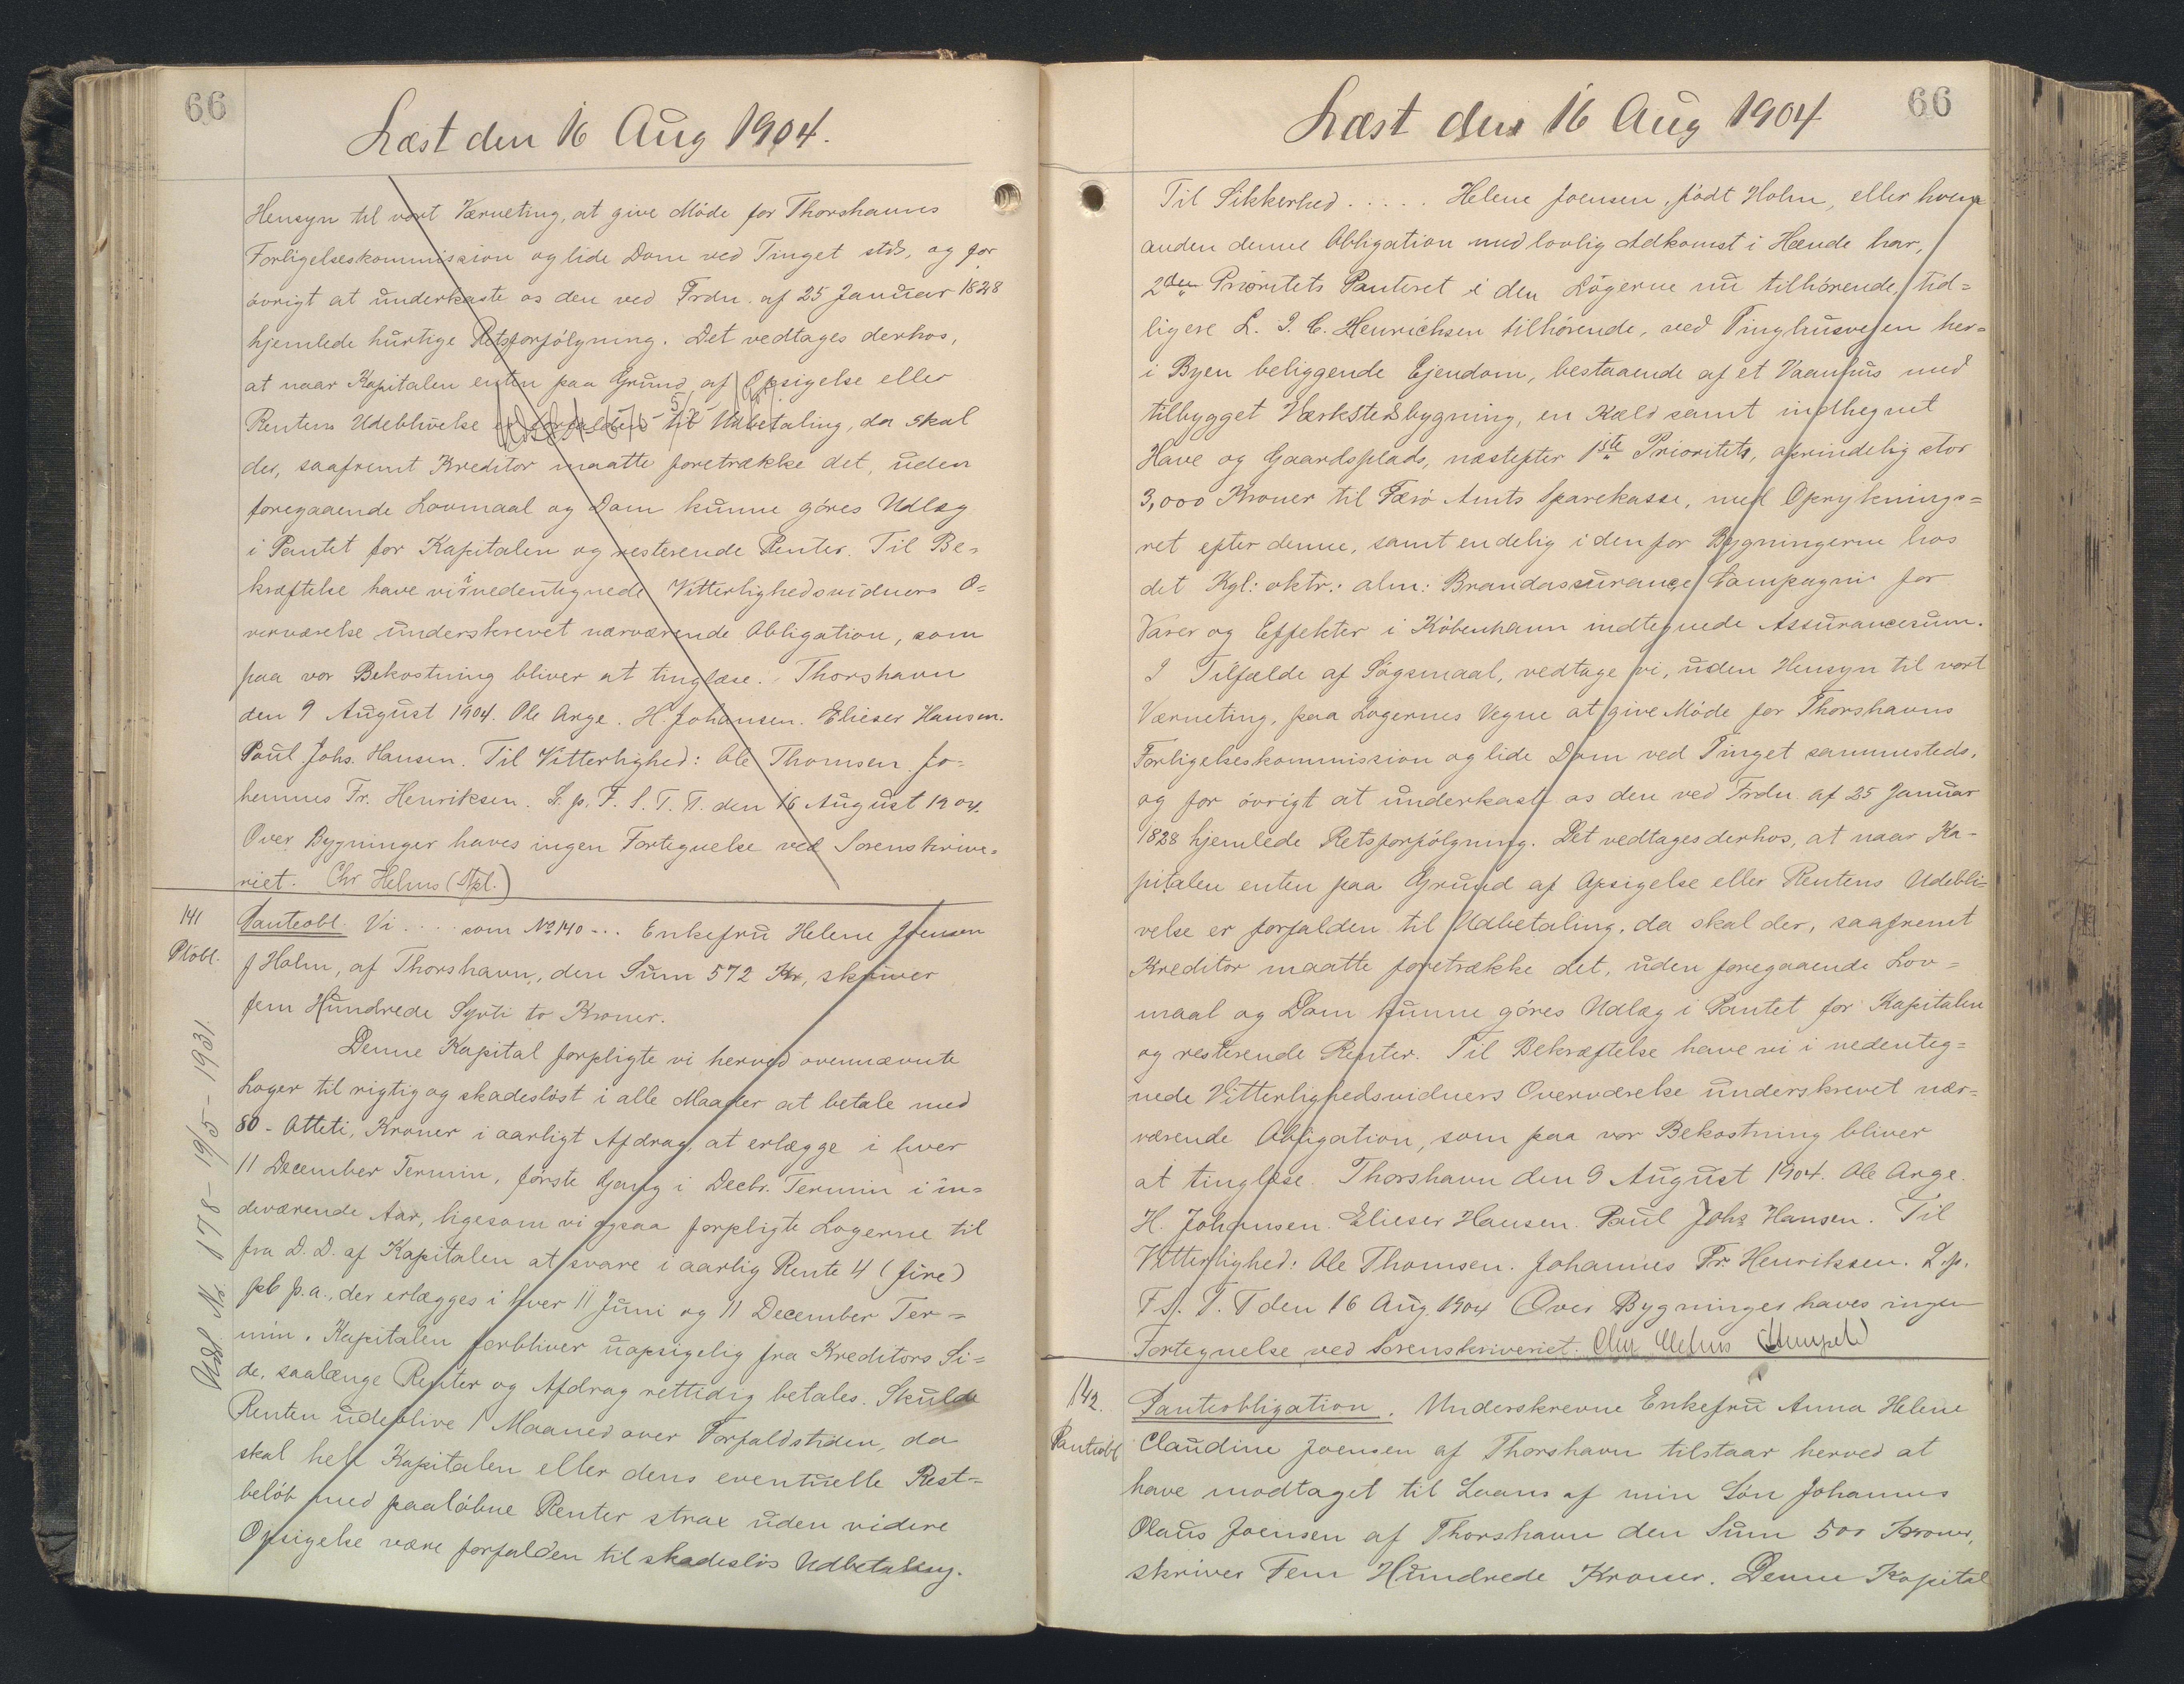 66
Læst den 16 Aug 1904.
Hensyn til vort Værneting, at give Møde for Thorshavns
Forligelseskommission og lide Dom ved Tinget stds, og for
øvrigt at underkaste os den ved Frdn. af 25 Januar 1828
hjemlede hurtige Retsforfølgning. Det vedtages derhos,
at naar Kapitalen enten paa Grund af Opsigelse eller
Rentens Udeblivelse er forfalden til Udbetaling, da skal
der, saafremt Kreditor maatte foretrække det, uden
foregaaende Lovmaal og Dom kunne gøres Udlæg
i Pantet for Kapitalen og resterende Renter. Til Be=
kræftelse have vi i nedentegnede Vitterlighedsvidners O=
verværelse underskrevet nærværende Obligation, som
paa vor Bekostning bliver at tinglæse. Thorshavn
den 9 August 1904. Ole Arge. H. Johansen. Elieser Hansen.
Poul Johs. Hansen. Til Vitterlighed: Ole Thomsen. Jo=
hennus Fr. Henriksen. L. p. F. S. T. T. den 16 August 1904.
Over Bygninger haves ingen Fortegnelse ved Sorenskrive=
riet. Chr Helms (Stpl.)
141
Ptobl.
Panteobl. Vi .... som No 140 ... Enkefru Helene Joensen
f Holm, af Thorshavn, den Sum 572 Kr, skriver
fem Hundrede Syvti to Kroner.
Denne Kapital forpligte vi herved ovennævnte
Loger til rigtig og skadesløst i alle Maader at betale med
80 - Otteti, Kroner i aarligt Afdrag, at erlægge i hver
11 December Termin, første Gang i Decbr. Termin i in=
deværende Aar, ligesom vi ogsaa forpligte Logerne til
fra D. D. af Kapitalen at svare i aarlig Rente 4 (fire)
pCt p.a., der erlægges i hver 11 Juni og 11 December Ter=
min. Kapitalen forbliver uopsigelig fra Kreditors Si=
de, saalænge Renter og Afdrag rettidig betales. Skulde
Renten udeblive 1 Maaned over Forfaldstiden, da
skal hele Kapitalen eller dens eventuelle Rest=
beløb med paaløbne Renter strax uden videre
Opsigelse være forfalden til skadesløs Udbetaling.
Udsl. Nr. 178 - 19/5 - 1931.
66
Læst den 16 Aug 1904
Til Sikkerhed ..... Helene Joensen, født Holm, eller hvem
anden denne Obligation med lovlig Adkomst i Hænde har,
2den Prioritets Panteret i den Logerne nu tilhørende, tid=
ligere L. I. C. Henrichsen tilhørende, ved Tinghusvejen her=
i Byen beliggende Ejendom, bestaaende af et Vaanhus med
tilbygget Værkstedsbygning, en Kæld samt indhegnet
Have og Gaardsplads, næstefter 1ste Prioritets, oprindelig stor
3,000 Kroner til Færø Amts Sparekasse, med Opryknings=
ret efter denne, samt endelig i den for Bygningerne hos
det Kgl: oktr.: alm: Brandassurance Compagni for
Varer og Effekter i København indtegnede Assurancesum.
I Tilfælde af Søgsmaal, vedtage vi, uden Hensyn til vort
Værneting, paa Logernes Vegne at give Møde for Thorshavns
Forligelseskommission og lide Dom ved Tinget sammesteds,
og for øvrigt at underkaste os den ved Frdn. af 25 Januar
1828 hjemlede Retsforfølgning. Det vedtages derhos, at naar Ka-
pitalen enten paa Grund af Opsigelse eller Rentens Udebli=
velse er forfalden til Udbetaling, da skal der, saafremt
Kreditor maatte foretrække det, uden foregaaende Lov=
maal og Dom kunne gøres Udlæg i Pantet for Kapitalen
og resterende Renter. Til Bekræftelse have vi i nedenteg=
nede Vitterlighedsvidners Overværelse underskrevet nær=
værende Obligation, som paa vor Bekostning bliver
at tinglæse. Thorshavn den 9 August 1904. Ole Arge.
H. Johansen. Elieser Hansen. Poul Johs Hansen. Til
Vitterlighed: Ole Thomsen. Johannes Fr. Henriksen. L.p.
F.S. T. T den 16 Aug. 1904 Over Bygninger haves ingen
Fortegnelse ved Sorenskriveriet. Chr Helms (Stempel)
142.
Panteobl
Panteobligation. Underskrevne Enkefru Anna Helene
Claudine Joensen af Thorshavn tilstaar herved at
have modtaget til Laans af min Søn Johannes
Olaus Joensen af Thorshavn den Sum 500 Kroner,
skriver Fem Hundrede Kroner. Denne Kapital